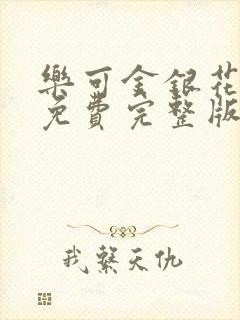 樂可金銀花
免費完整版
我繫天仇